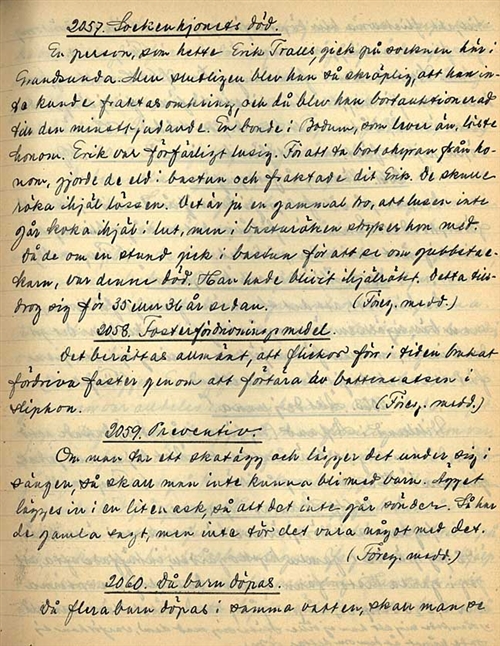 2057. Sockenhjonets död.
En person, som hette Erik Tralls, gick på socknen här i
Grundsunda. Men slutligen blev han så skröplig, att han in-
te kunde fraktas omkring, och då blev han bortauktionerad
till den minstbjudande. En bonde i Bodum, som lever än, liste
honom. Erik var förfärligt lusig. För att ta bort ohyran från ho-
nom, gjorde de eld i bastun och fraktade dit Erik. De skulle
röka ihjäl lössen. Det är ju en gammal tro, att lusen inte
går koka ihjäl i lut, men i basturöken stryper hon med.
Då de om en stund gick i bastun för att se om gubbstac-
karn, var denne död. Han hade blivit ihjälrökt. Detta till-
drog sig för 35 eller 36 år sedan. (Föreg. medd.)
2058. Fosterfördrivningsmedel.
Det berättas allmänt, att flickor förr i tiden brukat
fördriva foster genom att förtära av bottensatsen i
sliphon. (Föreg. medd.)
2059. Preventiv.
Om man tar ett skatägg och lägger det under sig i
sängen, så skall man inte kunna bli med barn. Ägget
lägges in i en liten ask, så att det inte går sönder. Så har
de gamla sagt, men inte tör det vara något med det.
(Föreg. medd.)
2060. Då barn döpas.
Då flera barn döpas i samma vatten, skall man se